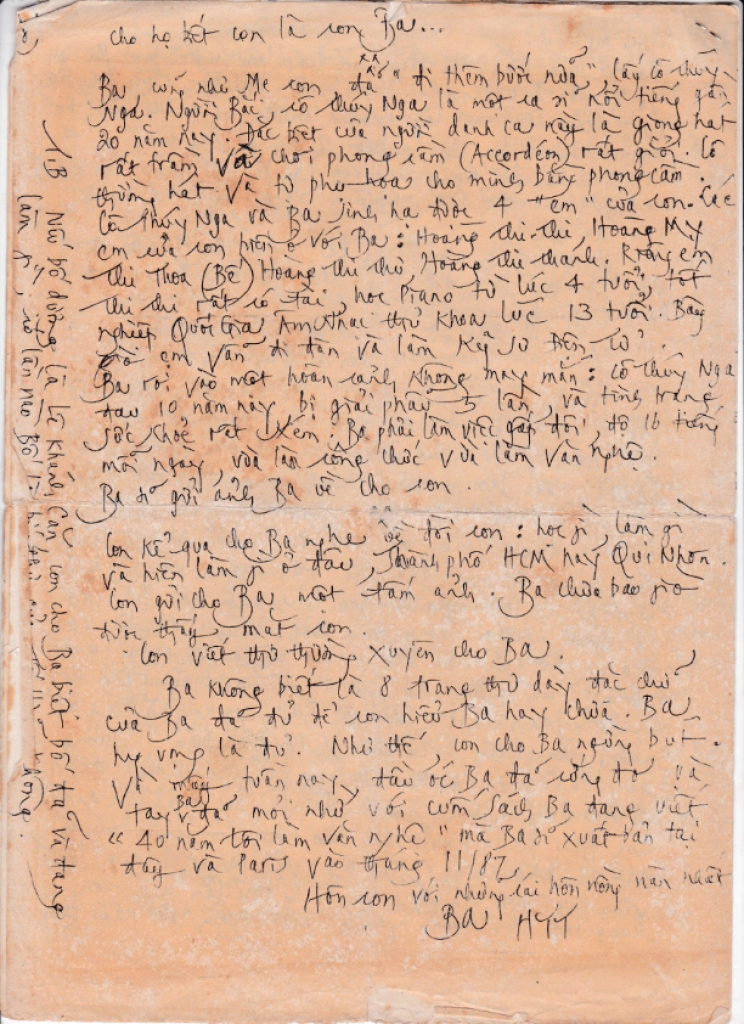 cho họ biết con là con Ba...
Ba, cũng như Mẹ con, đã "đi thêm bước nữa", lấy cô Thúy
Nga. Người Bắc, cô Thúy Nga là một ca sĩ nổi tiếng gần
20 năm nay. Đặc biệt của người danh ca này là giọng hát
rất trầm và chơi phong cầm (Accordéon) rất giỏi. Cô
thường hát và tự phụ họa cho mình bằng phong cầm.
Cô Thúy Nga và Ba sinh hạ được 4 "em" của con. Các
em của con hiện ở với Ba: Hoàng thi-thi, Hoàng Mỹ
thi Thoa (Bé) Hoàng thi thơ, Hoàng thi thanh. Riêng em
thi thi rất có tài, học Piano từ lúc 4 tuổi, tốt
nghiệp Quốc Gia Âm Nhạc thủ khoa lúc 13 tuổi. Bây
giờ em vẫn đi đàn và làm kỹ sư điện tử.
Ba rơi vào một hoàn cảnh không may mắn: cô Thúy Nga
đau 10 năm nay bị giải phẫu 5 lần, và tình trạng
sức khỏe rất kém. Ba phải làm việc gấp đôi, độ 16 tiếng
mỗi ngày, vừa làm công chức vừa làm văn nghệ.
Ba sẽ gửi ảnh Ba về cho con.
Con kể qua cho Ba nghe về đời con: học gì, làm gì
và hiện làm gì ở đâu, thành phố HCM hay Qui Nhơn.
Con gửi cho Ba một tấm ảnh. Ba chưa bao giờ
được thấy mặt con.
Con viết thư thường xuyên cho Ba.
Ba không biết là 8 trang thư dày đặc chữ
của Ba đã đủ để con hiểu Ba hay chưa. Ba
hy vọng là đủ. Như thế, con cho Ba ngừng bút.
Vì mấy tuần nay, đầu óc Ba đã cứng đờ và
tay Ba đã mỏi nhừ với cuốn sách Ba đang viết
"40 năm tôi làm văn nghệ" mà Ba sẽ xuất bản tại
đây và Paris vào tháng 11/87.
Hôn con với những cái hôn nồng nàn nhất
Ba HTT
T.B Nếu bố dượng là Lê Khánh Căn, con cho Ba biết bố đã và đang
làm gì, có lần nào bố không.